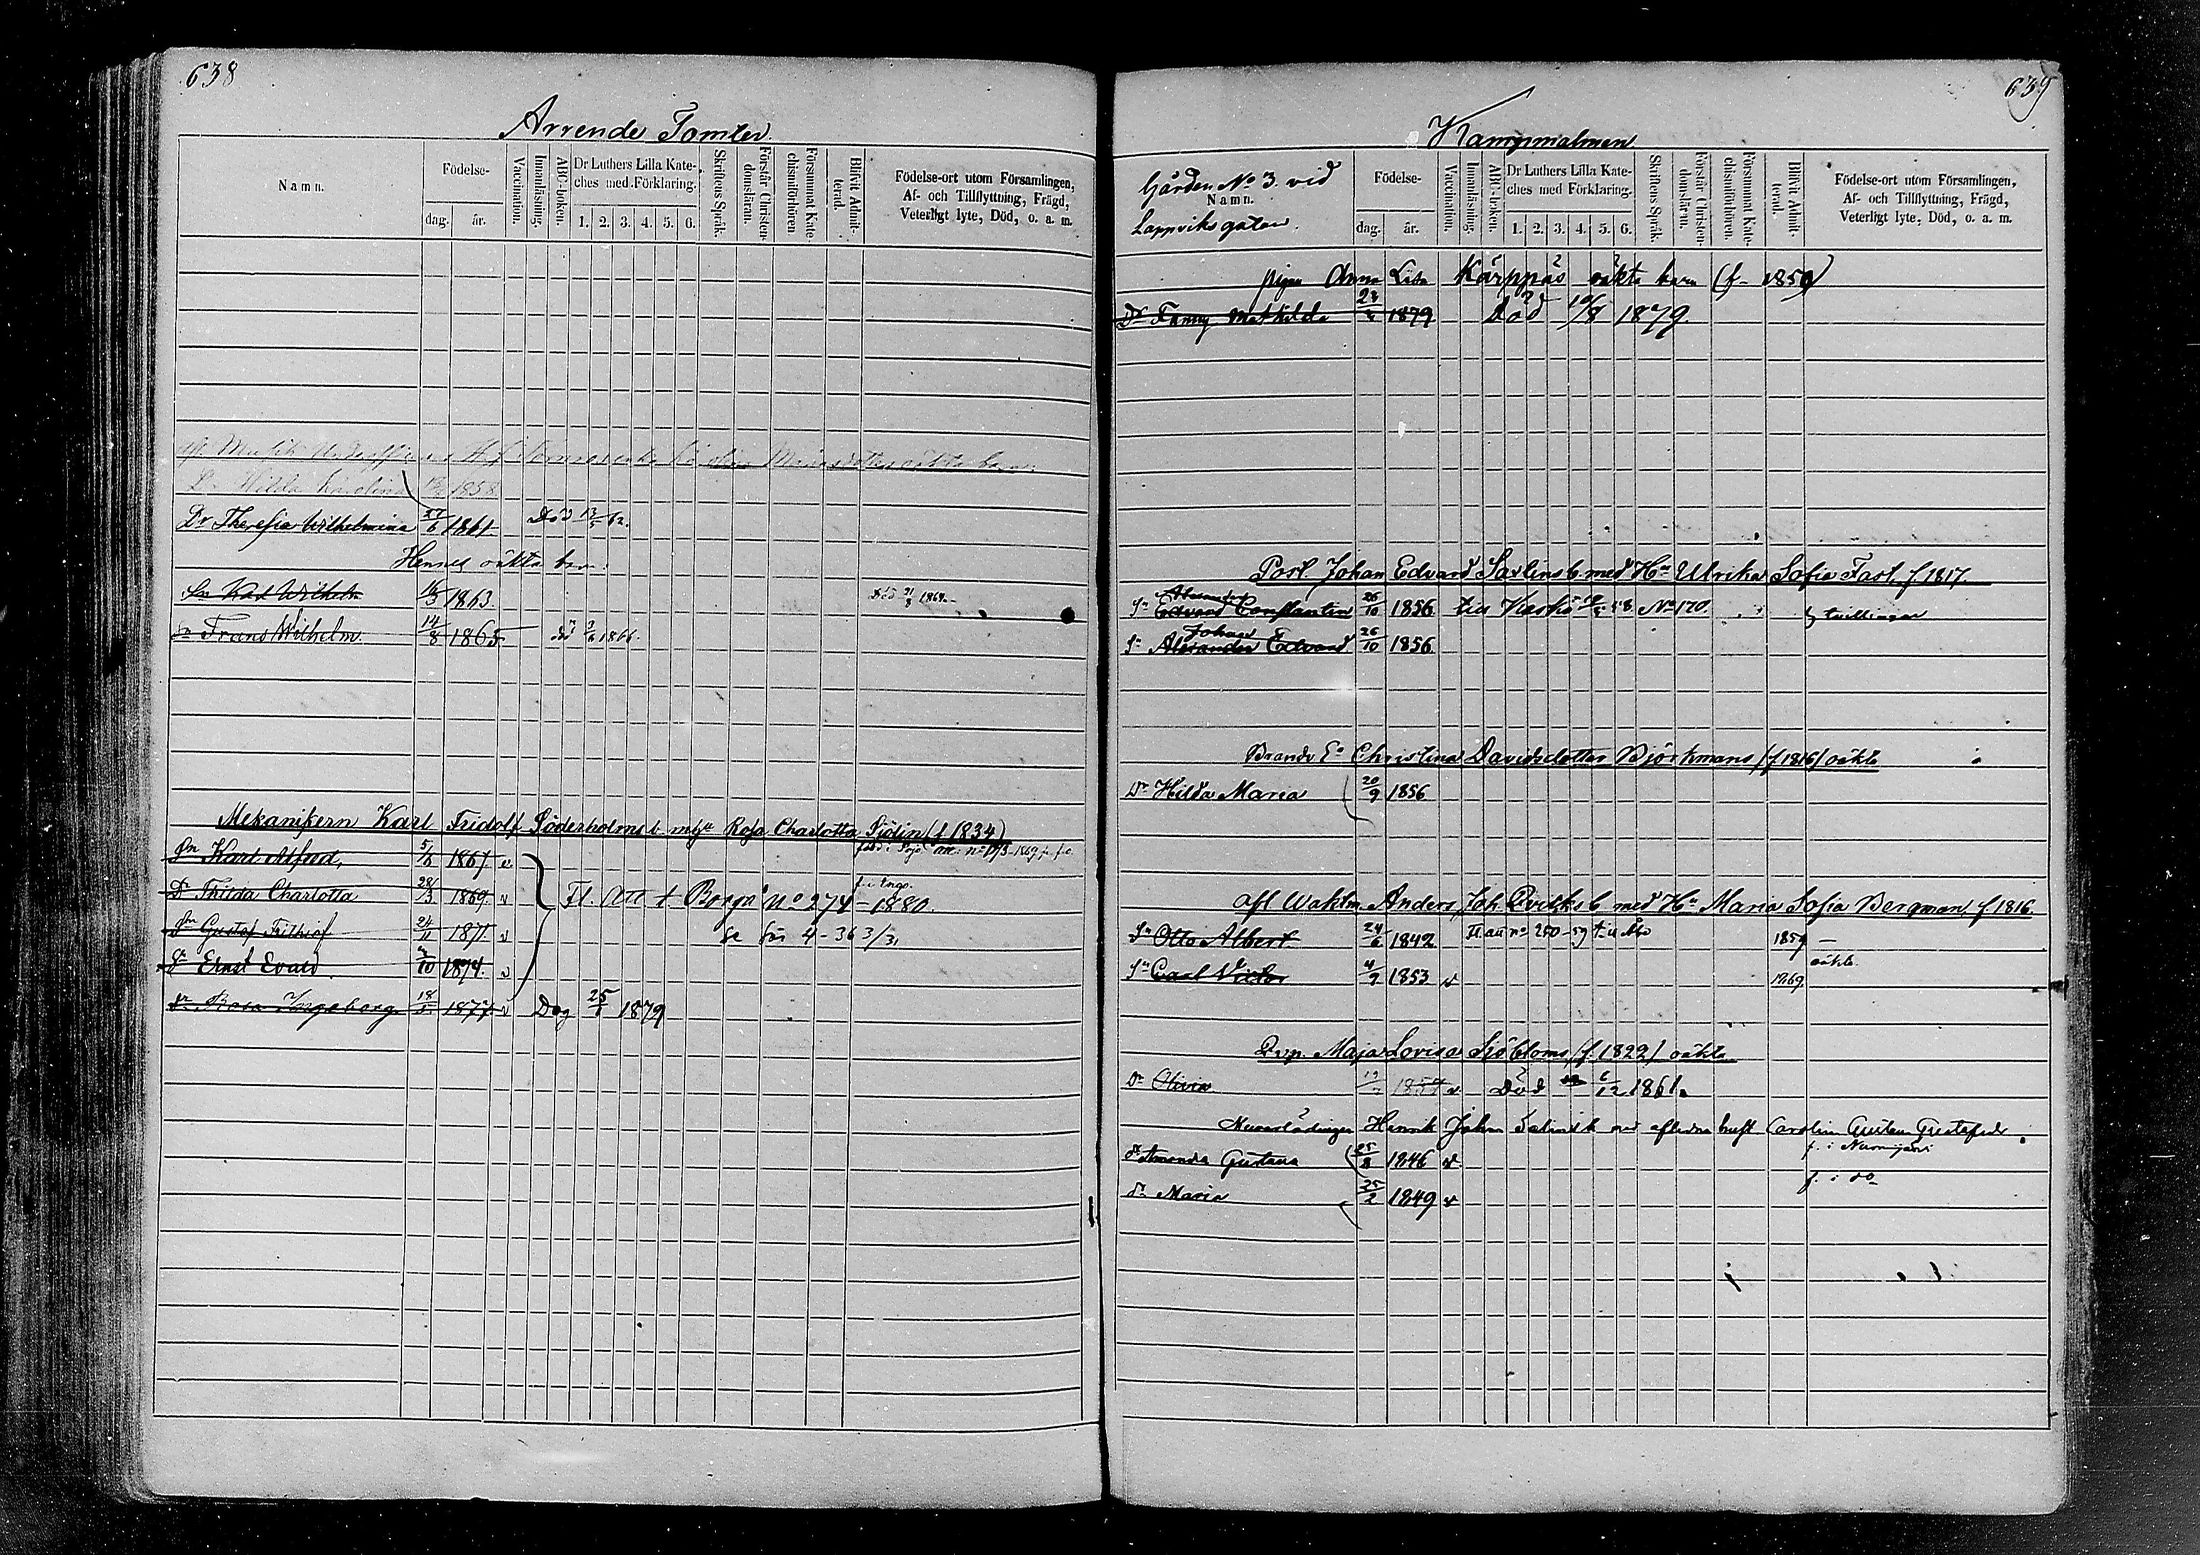 638
Arrende Tomter.
Namn.
Födelse-
dag.
år.
Vaccination.
Innanläsning.
ABC-boken.
Dr Luthers Lilla Kate-
ches med Förklaring.
1. 2. 3. 4. 5. 6.
Skriftens Språk.
Förstår Christen-
domsläran.
Försummat Kate-
chismiförhören
Blifvit Admit-
terad.
Födelse-ort utom Församlingen,
Af- och Tillflyttning, Frägd,
Veterligt lyte, Död, o. a. m.
Dr Hilda Karolina 1858
Dr Theresia Wilhelmina 27/6 1861 Död 13/5 62.
Hennes oäkta barn:
Sn Karl Wilhelm 1863 Död 1864
Sn Frans Wilhelm 14/8 1865 1866
Mekanikern Karl Fridolf Söderholms b. m hu Rosa Charlotta Sjödin (f 1834)
Sn Karl Alfred, 1867 v
Dr Frida Charlotta 28/3 1869 v Fl. att t Borgå No 274 - 1880.
Sn Gustaf Frithiof 1871 v se 4-36 3/31
Sn Ernst Evald 2/10 1874 v
Dr Rosa Ingeborg 18/5 1877 v Dog 25/1 1879
639
Kampmalmen
Gården No 3 vid
Namn.
Lappviksgatan.
Födelse-
dag.
år.
Vaccination.
Innanläsning.
ABC-boken.
Dr Luthers Lilla Kate-
ches med Förklaring.
1. 2. 3. 4. 5. 6.
Skriftens Språk.
Förstår Christen-
domsläran.
Försummat Kate-
chismiförhören.
Blifvit Admit-
terad.
Födelse-ort utom Församlingen,
Af- och Tillflyttning, Frägd,
Veterligt lyte, Död, o. a. m.
pigan Anna Lisa Kärppäs oäkta barn (f 1850)
Dr Fanny Mathilda 1879 Död 10/8 1879.
Johan Edvard Savlins b med Hu Ulrika Sofia Fast f 1817.
Alexander
Sn Edvard Constantin 26/10 1856 till 58 No 170. tvillingar
Johan
Sn Alexander Edvard 26/10 1856
Brandv Ea Christina Davidsdotter Björkmans (f 1816) oäkta
Dr Hilda Maria 20/9 1856
afl Anders Joh b med Hu Maria Sofia Bergman f 1816.
Sn Otto Albert 24/6 1842 Fl att no 250-59 t Åbo 1859
oäkta.
Sn Carl Victor 4/9 1853 v 1869
Qvp. Maja Lovisa Sjöbloms (f. 1822) oäkta
Dr Olivia 1854 v Död 6/12 1861.
Henrik Johan b med aflidna hust. Carolina Gustava Gustafsd.
Dr Amanda Gustava 25/8 1846 v f. i Nurmijärvi
Dr Maria 25/2 1849 v f. i do